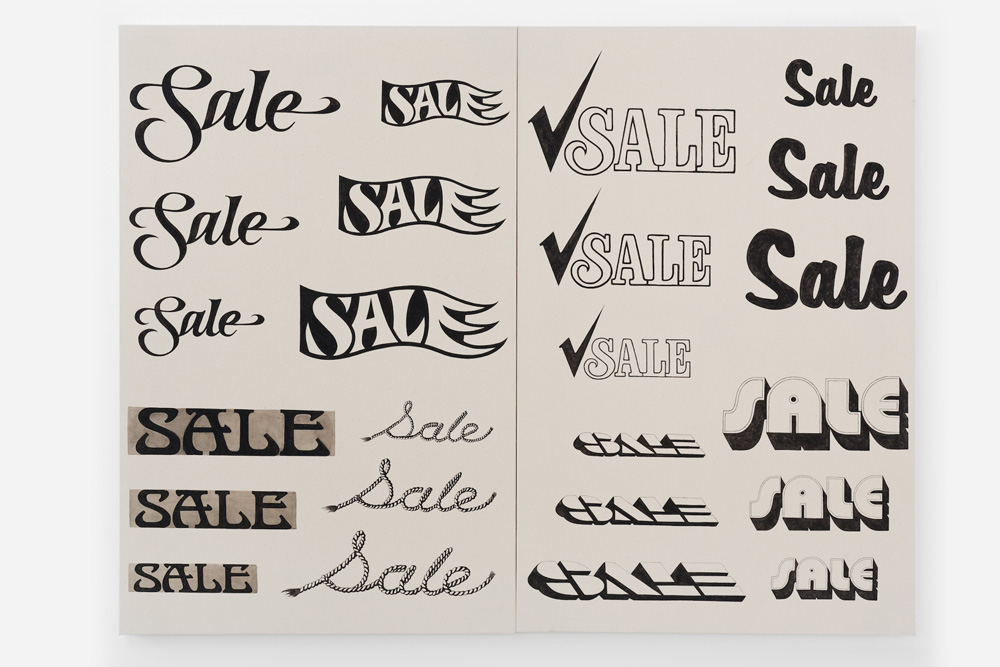 Sale
SALE
Sale
SALE
Sale
SALE
SALE
Sale
SALE
Sale
SALE
Sale
SALE
Sale
SALE
Sale
SALE
Sale
SALE
SALE
SALE
SALE
SALE
SALE